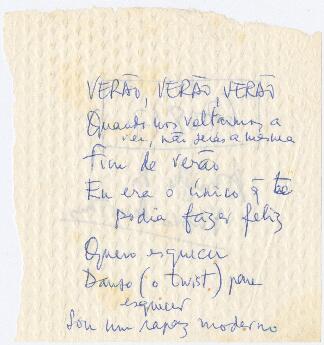 VERÃO, VERÃO, VERÃO
Quando nos voltarmos a
ver, não serás a mesma
Fim de verão
Eu era o único q̃ te
podia fazer feliz
Quero esquecer
Danso (o twist) para
esquecer
Sou um rapaz moderno